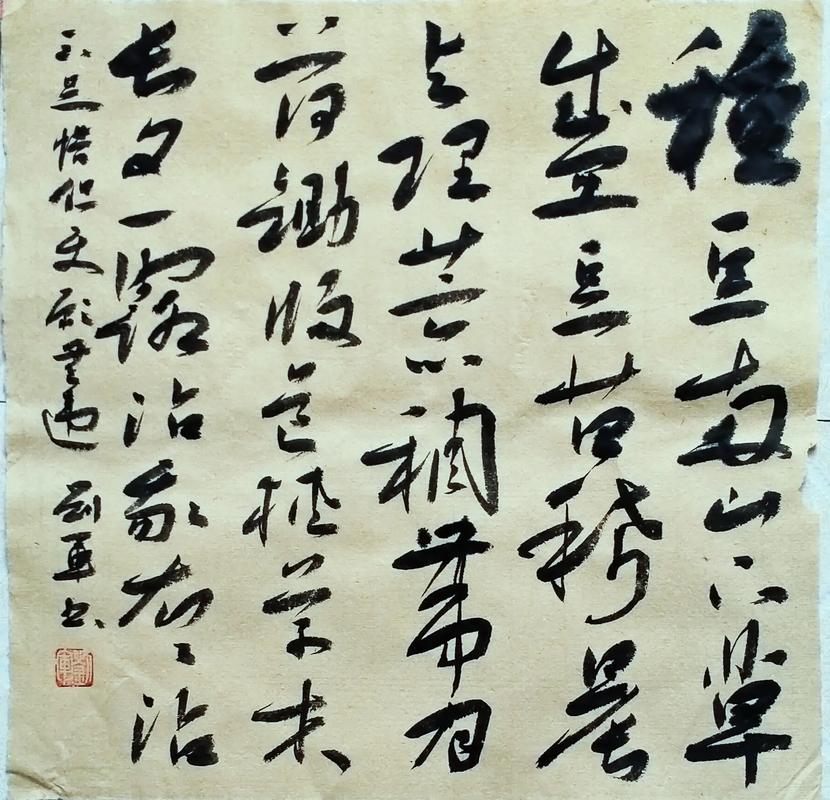 種豆南山下草
盛豆苗稀晨
興理荒穢帶月
荷鋤歸道狹草木
長夕露沾我衣々沾
不足惜但使願無違 劉軍书